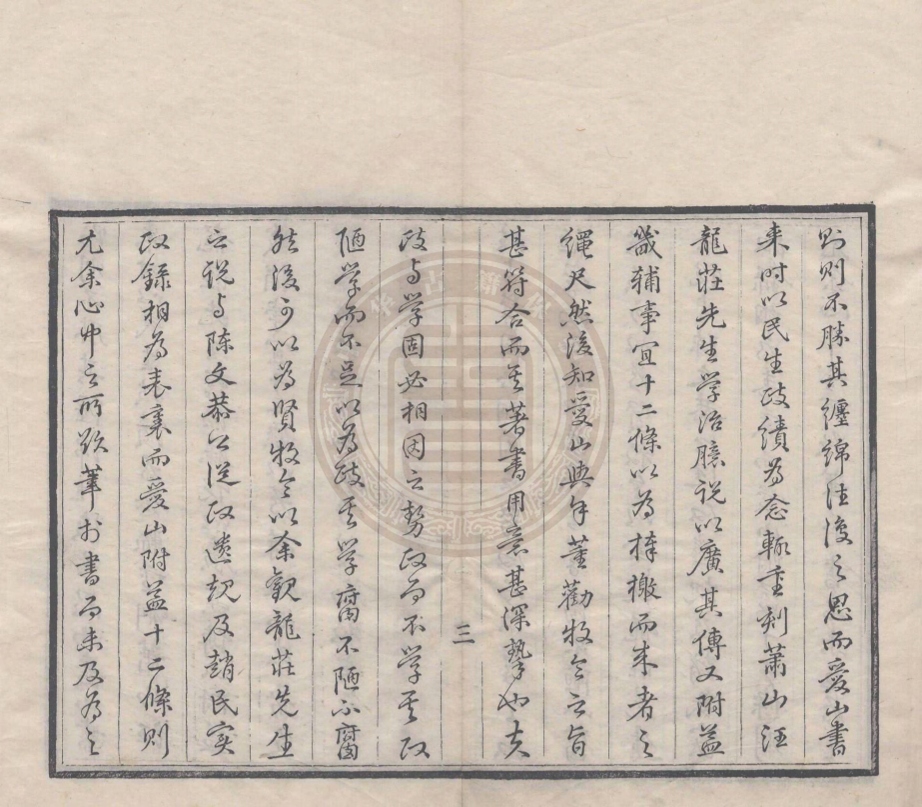 別則不勝其纏綿往復之思而愛山書
来时以民生政績為念輒重刻蕭山汪
龍莊先生学治臆説以廣其傳又附益
畿輔事宜十二條以為捧檄而来者之
繩尺然後知愛山與董勸牧令之旨
甚符合而其著書用意甚深摯也夫
三
政与学固必相因之勢政而不学其政
陋学而不足以為政其学腐不陋不腐
然後可以為賢牧令以余観龍莊先生
之説与陳文恭公從政遺規及趙民实
政録相為表裏而愛山附益十二條則
尤余心中之所欲筆於書而未及為之